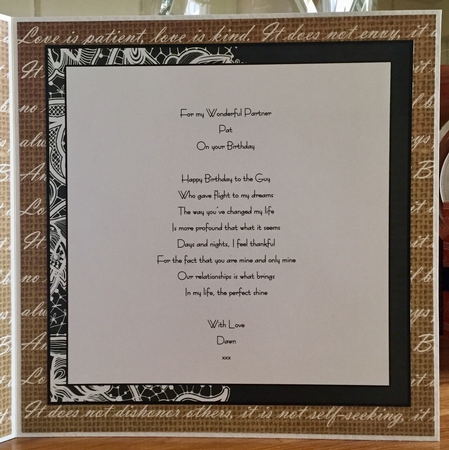 Love is patient, love is kind. It does not envy, it
For my Wonderful Partner
Pat
On your Birthday
Happy Birthday to the Guy
Who gave flight to my dreams
The way you've changed my life
Is more profound that what it seems
Days and nights, I feel thankful
For the fact that you are mine and only mine
Our relationships is what brings
In my life, the perfect shine
With Love
Dawn
xxx
It does not dishonor others, it is not self-seeking, it